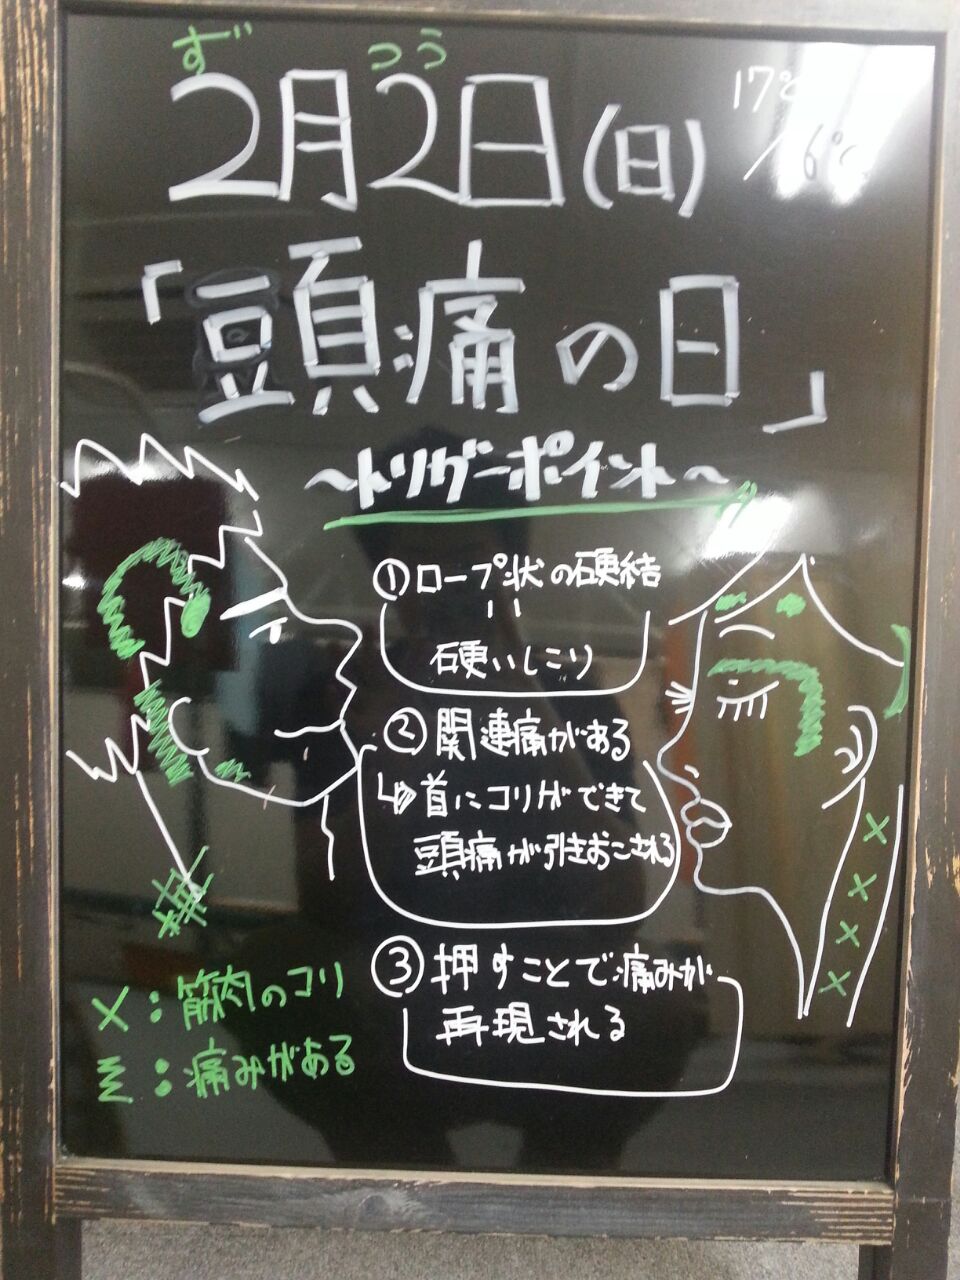 ず つう
2月2日(日)
17℃
/6℃
「頭痛の日」
～トリガーポイント～
①ロープ状の硬結
硬いしこり
②関連痛がある
↳首にコリができて
頭痛が引きおこされる
③押すことで痛みが
再現される
×:筋肉のコリ
:痛みがある